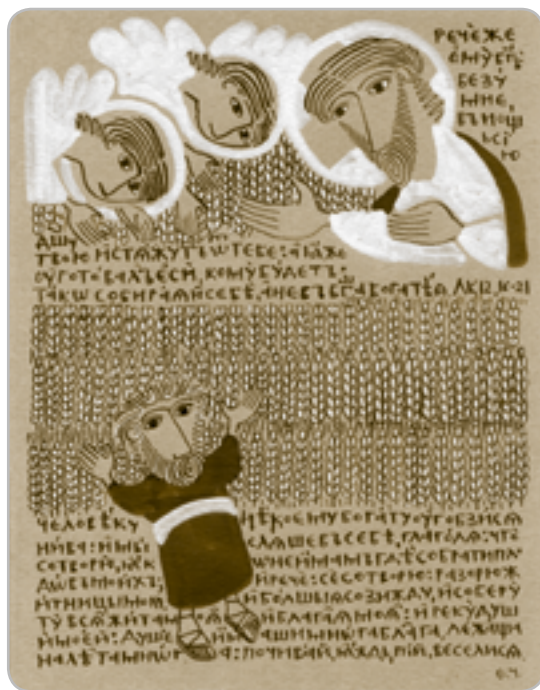 РЕЧЕ́ЖЕ
ЕМУ́БГ҃Ъ
БЕЗУ́
МНЕ,
ВЪНОЩ
ЬСІ́
Ю
ДШ҃У
ТВОЮ ИСТѦЖУТЪ Ѿ ТЕБЕ: А ꙖЖЕ
ОУГОТОВАЛЪ ЕСИ, КОМУ БУДЕТЪ:
ТАКѠ СОБИРАѦЙ СЕБѢ, А НЕ ВЪ БГ҃А БОГАТѢѦ ЛК 12, 16-21
ЧЕЛОВѢКУ НѢКОЕМУ БОГАТУ ОУГОБЗИСѦ
НИВА: И МЫ СЛѦШЕ ВЪ СЕБѢ, ГЛАГОЛѦ: ЧТО
СОТВОРЮ, ѦКѠ НЕ ИМАМЪ ГДѢ СОБРАТИ ПЛО
ДѠВЪ МОИХЪ: И РЕЧЕ: СЕ СОТВОРЮ: РАЗОРЮ Ж
ИТНИЦЫ МОѦ И БОЛШЫѦ СОЗИЖДУ, И СОБЕРУ
ТУ ВСѦ ЖИТА МОѦ И БЛАГАѦ МОѦ: И РЕКУ ДУШ
И МОЕЙ: ДУШЕ, ИМАШИ МНОГА БЛАГА, ЛЕЖАЩА
НА ЛѢТА МНОГА: ПОЧИВАЙ, ѦЖДЬ, ПІЙ, ВЕСЕЛИСѦ.
О.Ч.